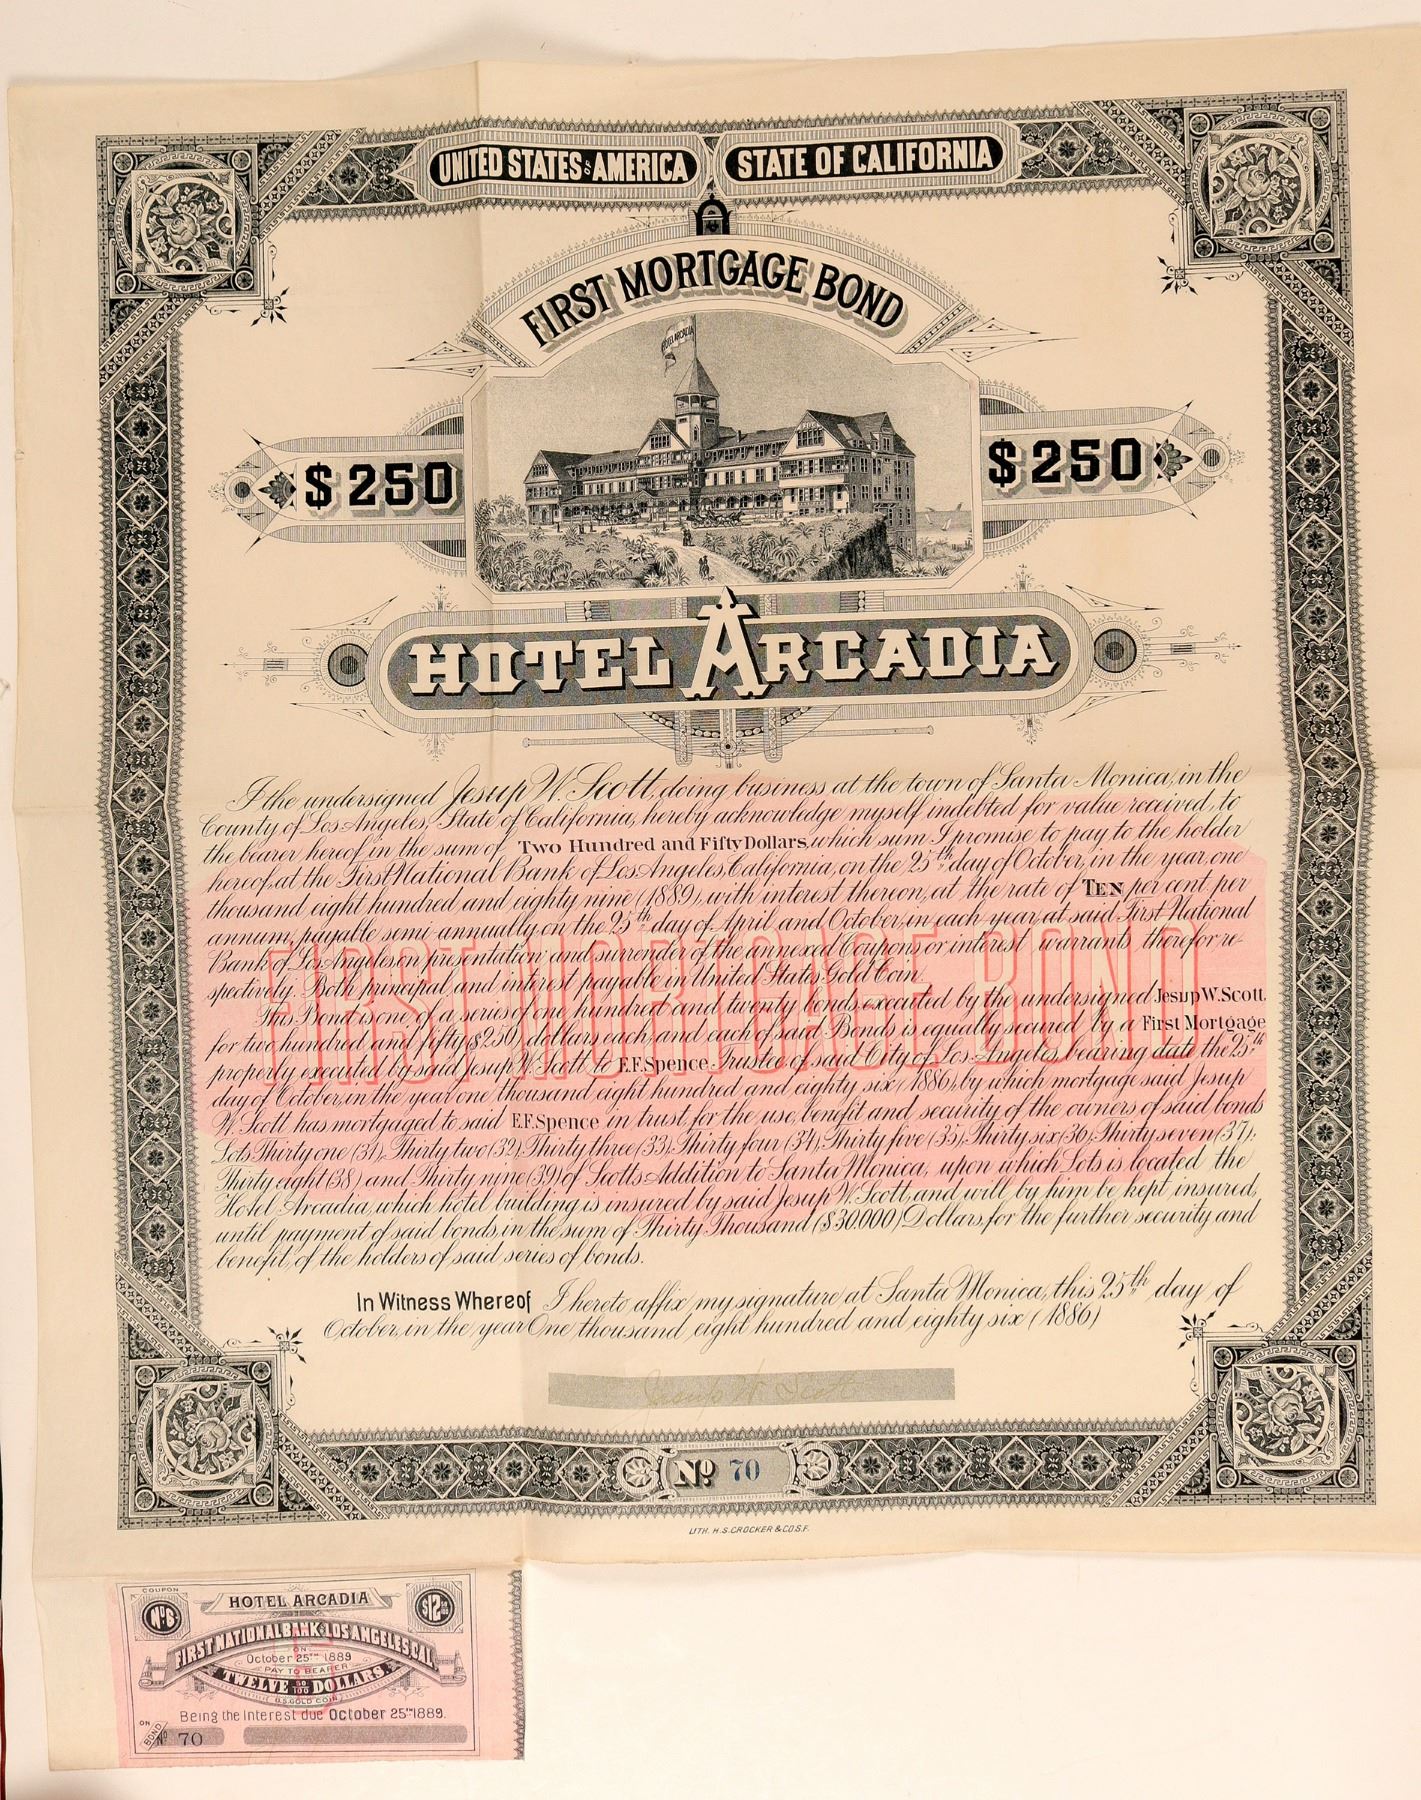 UNITED STATES OF AMERICA STATE OF CALIFORNIA
FIRST MORTGAGE BOND
HOTEL ARCADIA
$250 $250
HOTEL ARCADIA
I the undersigned Jesup W. Scott, doing business at the town of Santa Monica, in the
County of Los Angeles, State of California, hereby acknowledge myself indebted for value received, to
the bearer hereof in the sum of Two Hundred and Fifty Dollars, which sum I promise to pay to the holder
hereof, at the First National Bank of Los Angeles, California, on the 25th day of October, in the year, one
thousand eight hundred and eighty nine (1889), with interest thereon, at the rate of TEN per cent. per
annum, payable semi-annually on the 25th day of April and October, in each year, at said First National
Bank of Los Angeles, on presentation and surrender of the annexed Coupons, or interest warrants, therefor re-
spectively. Both principal, and interest payable in United States Gold Coin.
This Bond is one, of a series of one hundred and twenty bonds, executed by the undersigned Jesup W. Scott,
for two hundred and fifty ($250) dollars each, and each of said Bonds is equally secured by a First Mortgage
properly executed by said Jesup W. Scott to E.F. Spence, Trustee, of said City of Los Angeles, bearing date the 25th
day of October, in the year one thousand eight hundred and eighty six (1886), by which mortgage said Jesup
W. Scott has mortgaged to said E.F. Spence in trust, for the use, benefit and security of the owners of said bonds
Lots Thirty one (31), Thirty two (32), Thirty three (33), Thirty four (34), Thirty five (35), Thirty six (36), Thirty seven (37),
Thirty eight (38) and Thirty nine (39) of Scotts Addition to Santa Monica, upon which Lots is located the
Hotel Arcadia, which hotel building is insured by said Jesup W. Scott, and will by him be kept insured,
until payment of said bonds, in the sum of Thirty Thousand ($30.000) Dollars, for the further security and
benefit, of the holders of said series of bonds.
FIRST MORTGAGE BOND
In Witness Whereof I hereto affix my signature at Santa Monica, this 25th day of
October, in the year One thousand eight hundred and eighty six (1886)
Jesup W. Scott
No 70
LITH. H.S. CROCKER & CO. S.F.
COUPON
No 6
HOTEL ARCADIA
$12 50/100
FIRST NATIONAL BANK LOS ANGELES, CAL.
ON
October 25TH 1889
PAY TO BEARER
TWELVE 50/100 DOLLARS
U.S. GOLD COIN
6
Being the Interest due October 25TH 1889.
ON BOND No 70